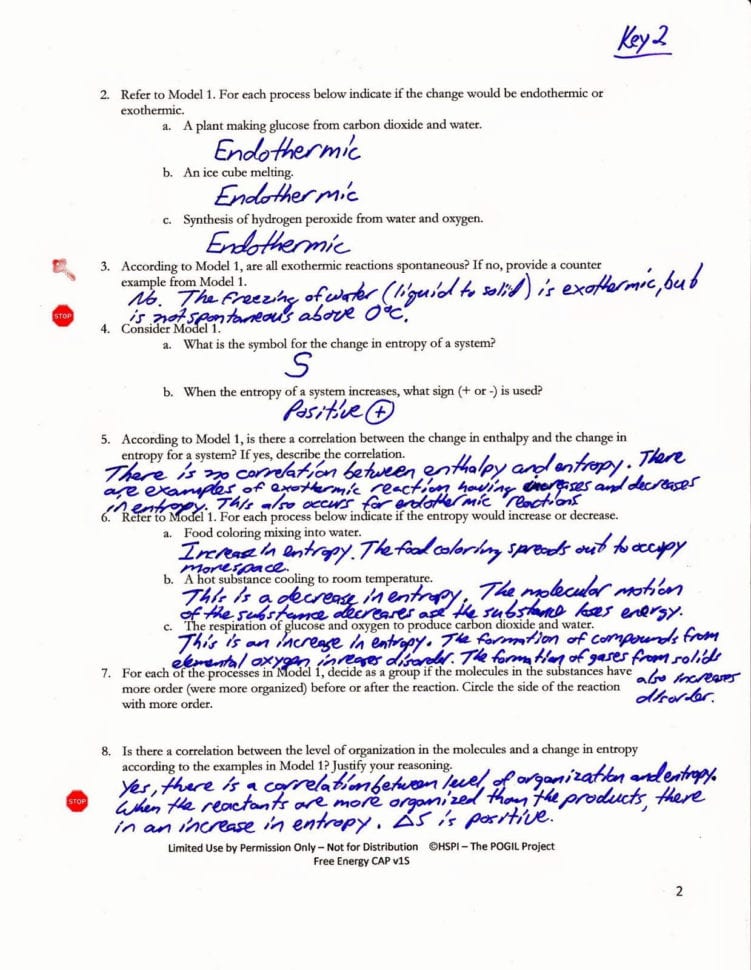 Key 2
2. Refer to Model 1. For each process below indicate if the change would be endothermic or
exothermic.
a. A plant making glucose from carbon dioxide and water.
Endothermic
b. An ice cube melting.
Endothermic
c. Synthesis of hydrogen peroxide from water and oxygen.
Endothermic
3. According to Model 1, are all exothermic reactions spontaneous? If no, provide a counter
example from Model 1.
No. The freezing of water (liquid to solid) is exothermic, but
is not spontaneous above 0°C.
STOP
4. Consider Model 1.
a. What is the symbol for the change in entropy of a system?
S
b. When the entropy of a system increases, what sign (+ or -) is used?
Positive (+)
5. According to Model 1, is there a correlation between the change in enthalpy and the change in
entropy for a system? If yes, describe the correlation.
There is no correlation between enthalpy and entropy. There
are examples of exothermic reaction having increases and decreases
in entropy. This also occurs for endothermic reactions
6. Refer to Model 1. For each process below indicate if the entropy would increase or decrease.
a. Food coloring mixing into water.
Increase in entropy. The food coloring spreads out to occupy
more space.
b. A hot substance cooling to room temperature.
This is a decrease in entropy. The molecular motion
of the substance decreases as the substance loses energy.
c. The respiration of glucose and oxygen to produce carbon dioxide and water.
This is an increase in entropy. The formation of compounds from
elemental oxygen increases disorder. The formation of gases from solids
also increases
disorder.
7. For each of the processes in Model 1, decide as a group if the molecules in the substances have
more order (were more organized) before or after the reaction. Circle the side of the reaction
with more order.
8. Is there a correlation between the level of organization in the molecules and a change in entropy
according to the examples in Model 1? Justify your reasoning.
Yes, there is a correlation between level of organization and entropy.
STOP
When the reactants are more organized than the products, there
in an increase in entropy. ΔS is positive.
Limited Use by Permission Only – Not for Distribution ©HSPI – The POGIL Project
Free Energy CAP v1S
2